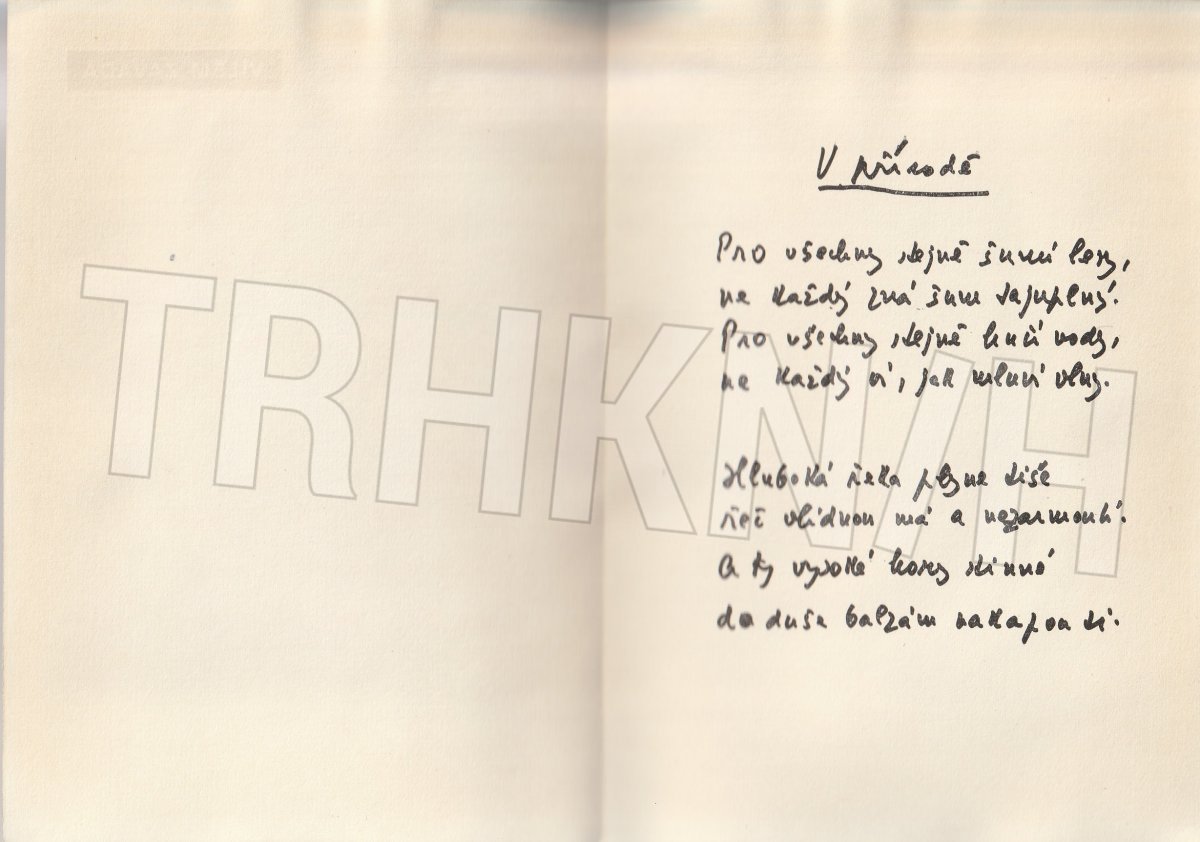 V přírodě
Pro všechny stejně šumí lesy,
ne každý zná šum tajuplný.
Pro všechny stejně hučí vody,
ne každý ví, jak mluví vlny.
Hluboká řeka plyne tiše
řeč vlídnou má a nezarmoutí.
A ty vysoké hory stinné
do duše balzám nakapou ti.
TRHKNIH